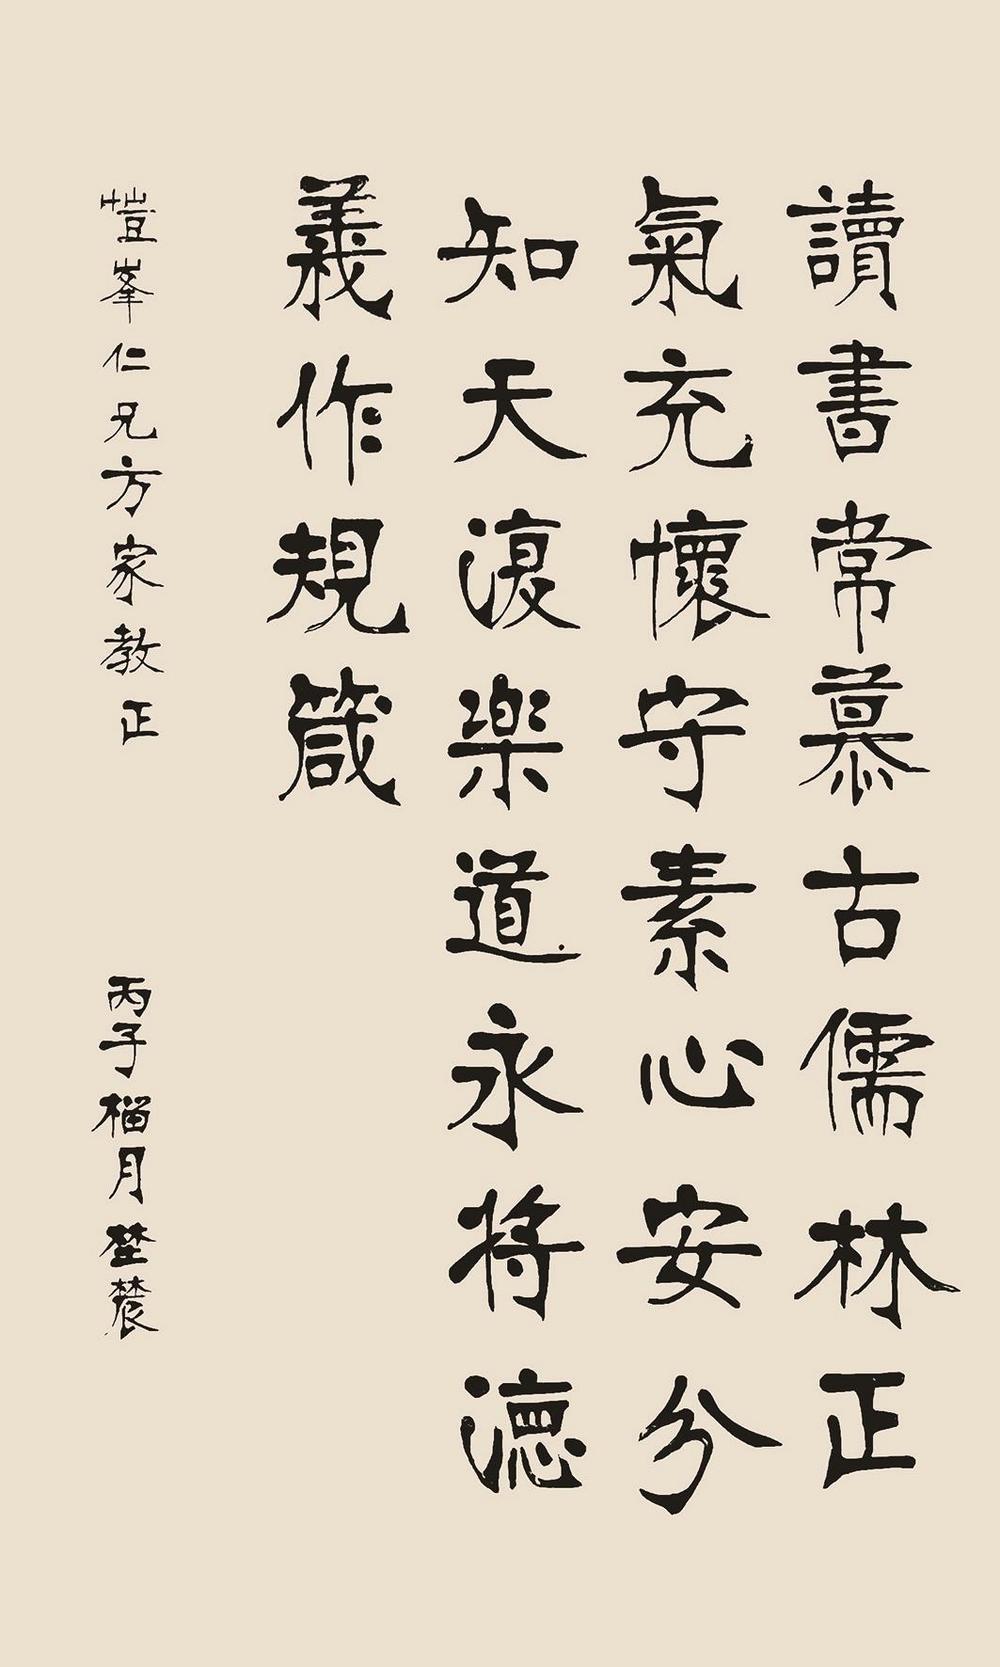 讀書常慕古儒林正
氣充懷守素心安分
知天復樂道永將德
義作規箴
愷峯仁兄方家教正
丙子榴月埜辳